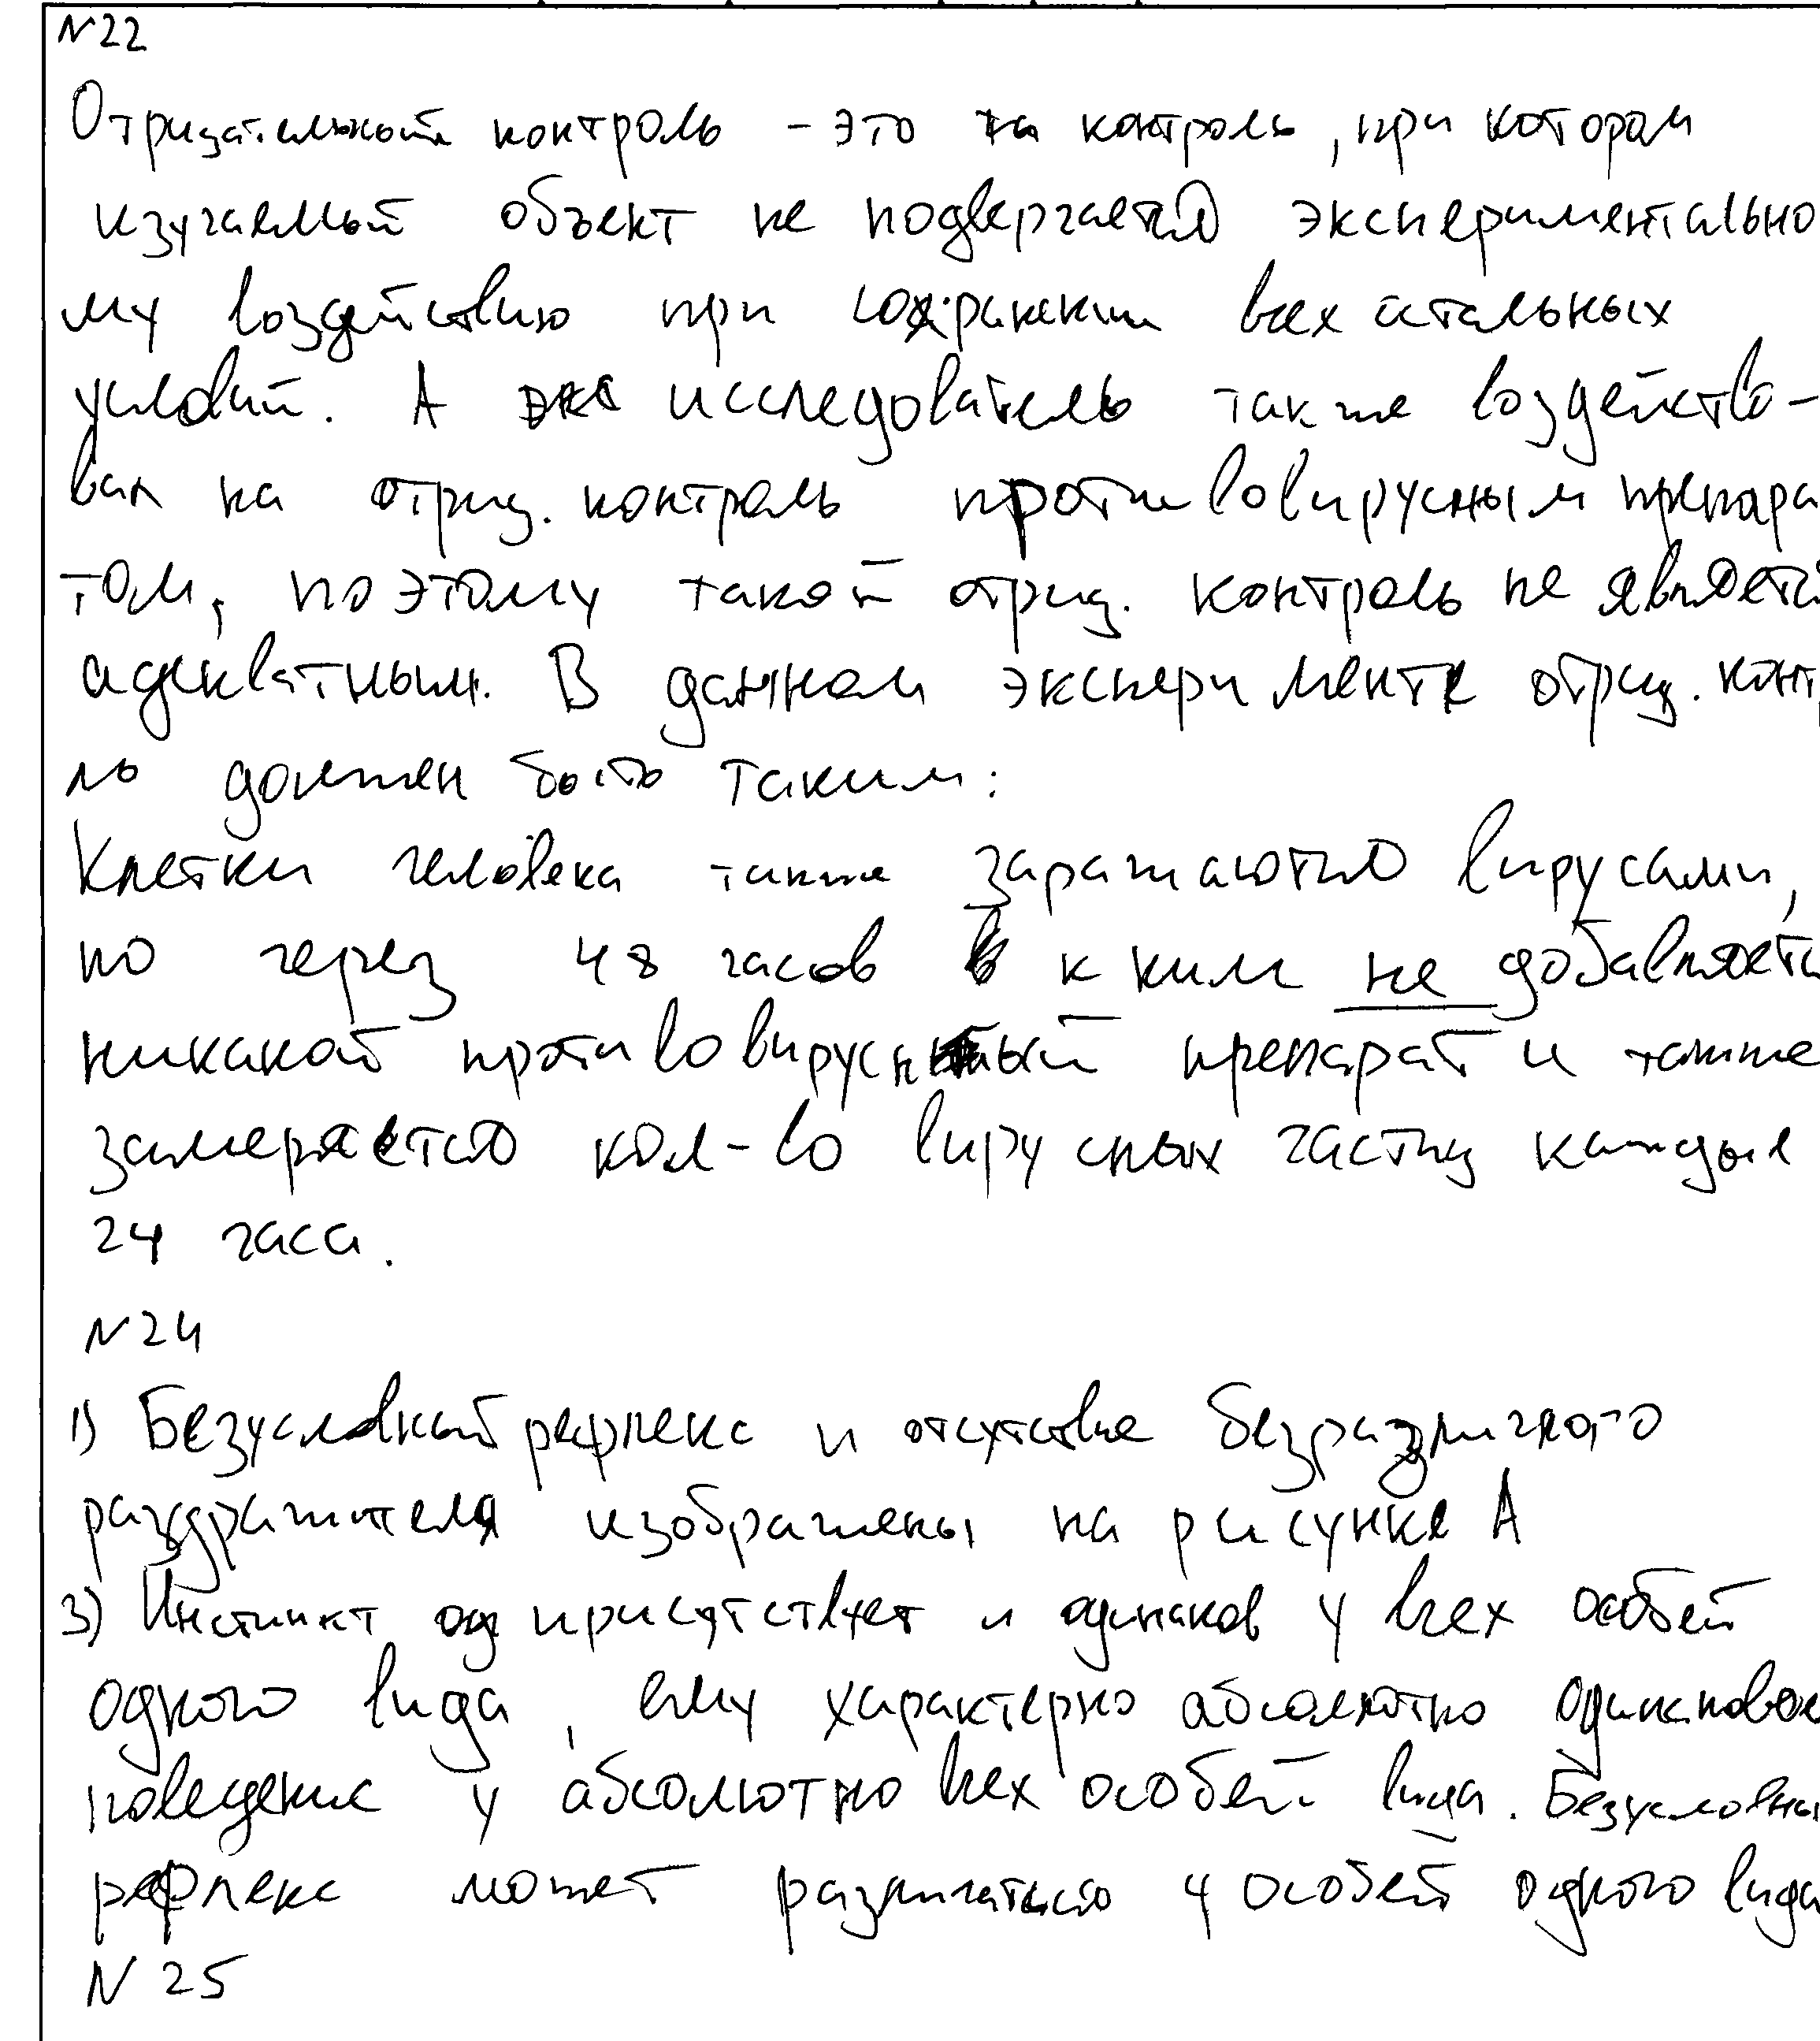 N22
Отрицательный контроль - это контроль, при котором
изучаемый объект не подвергается экспериментально
му воздействию при сохранении всех остальных
условий. А исследователь также воздейство-
вал на отриц. контроль противовирусным препара
том, поэтому такой отриц. контроль не является
адекватным. В данном эксперименте отриц. контр
ль должен быть таким:
Клетки человека также заражаются вирусами,
но через 48 часов к ним не добавляется
никакой противовирусный препарат и также
замеряется кол-во вирусных частиц каждые
24 часа.
N24
1) Безусловный рефлекс и отсутствие безразличного
раздражителя изображены на рисунке А
3) Инстинкт присутствует и одинаков у всех особей
одного вида, ему характерно абсолютно одинаковое
поведение у абсолютно всех особей вида. Безусловны
рефлекс может различаться у особей одного вида
N 25